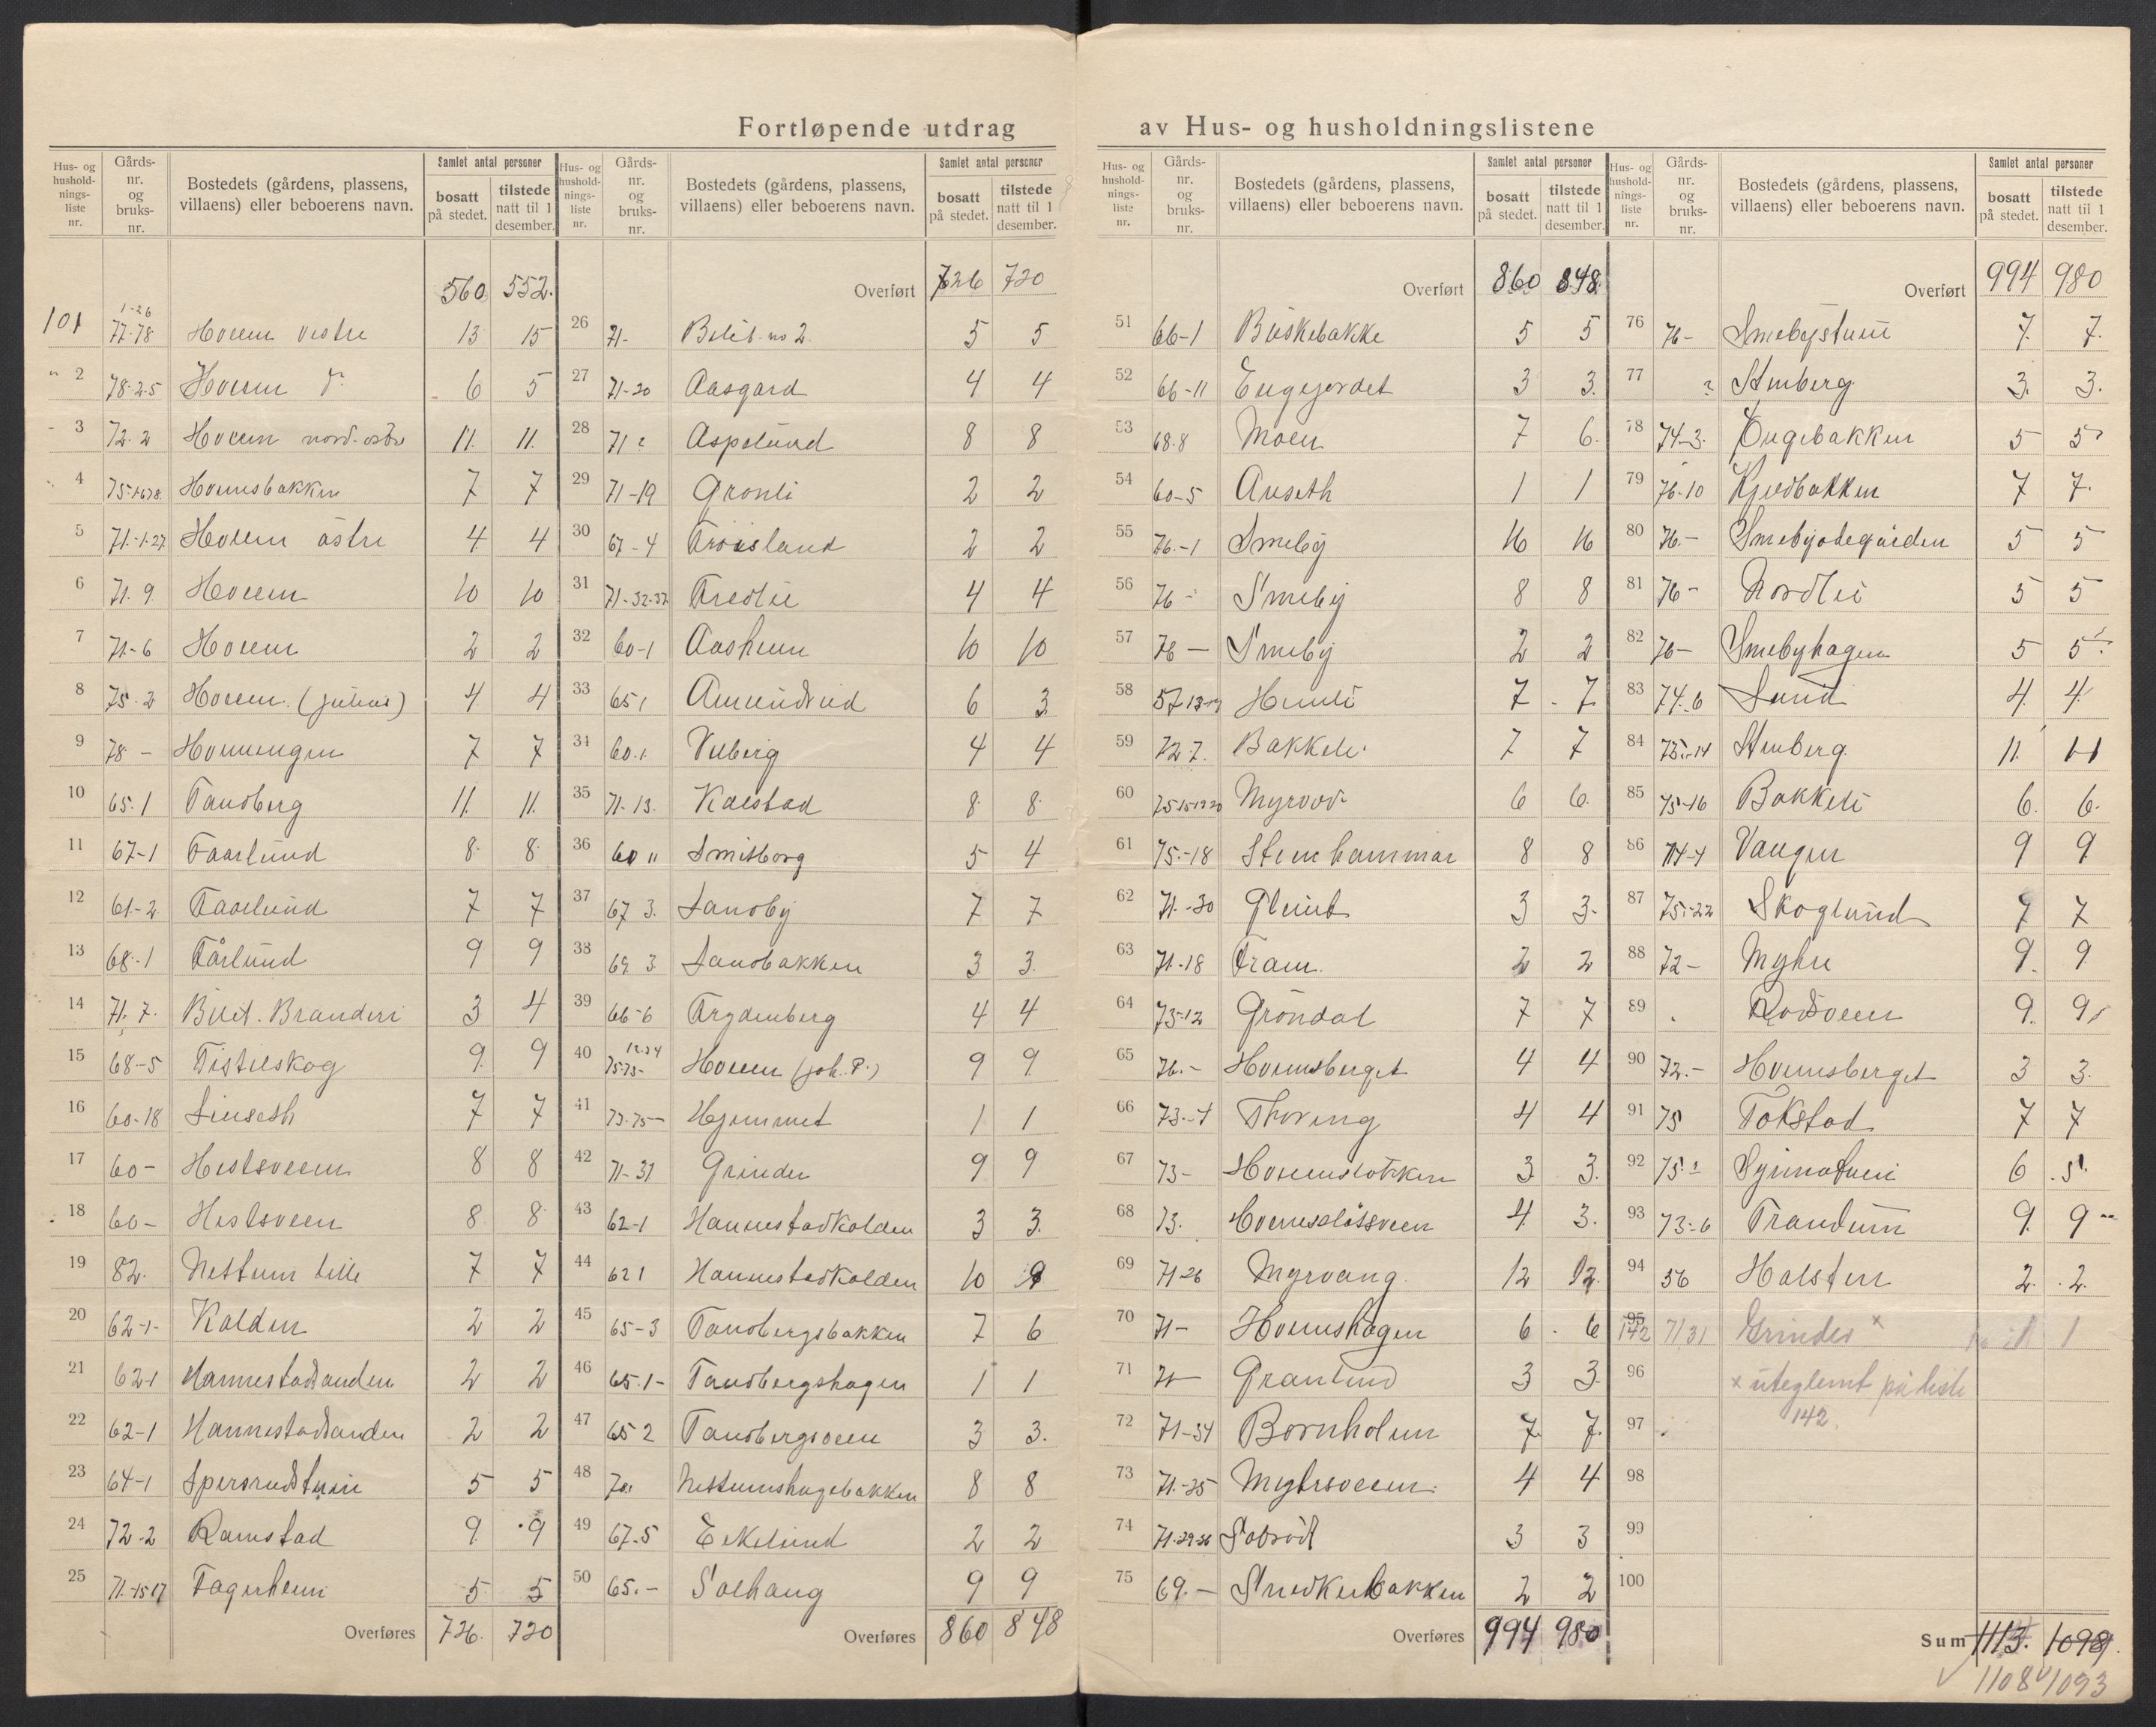 Fortløpende utdrag av Hus- og husholdningslistene
Hus- og husholdnings-liste nr. | Gårds-nr. og bruks-nr. | Bostedets (gårdens, plassens, villaens) eller beboerens navn. | Samlet antal personer: bosatt på stedet. | tilstede natt til 1 desember.
560 552.
101 77-78 1-26 Hovem vestre 13 15
" 2 78-2-5 Hovem 6 5
- 3 72.2 Hovem nord-østre 11. 11.
4 75 Hovensbakken 7 7
5 71.-1-27 Hovem östre 4 4
6 71.9 Hovem 10 10
7 71-6 Hovem 2 2
8 75.2 Hovem (Julius) 4 4
9 78 - 7 7
10 65.1 Tandberg 11. 11.
11 67-1 Faarlund 8 8
12 61-2 Faarlund 7 7
13 68-1 Fårlund 9 9
14 71.7. 3 4
15 68-5 Tistelskog 9 9
16 60-18 Linseth 7 7
17 60- Hestsveen 8 8
18 60- Hestsveen 8 8
19 82. Nettum lille 7 7
20 62-1- Kolden 2 2
21 62-1 Hannestadsanden 2 2
22 62-1 Hannestadsanden 2 2
23 64-1 Spersrudstuen 5 5
24 72-2 Ramstad 9 9
25 71.-15-17 Fagerheim 5 5
Overføres 726. 720
Hus- og husholdnings-liste nr. | Gårds-nr. og bruks-nr. | Bostedets (gårdens, plassens, villaens) eller beboerens navn. | Samlet antal personer: bosatt på stedet. | tilstede natt til 1 desember.
Overført 726 720
26 71- no 2. 5 5
27 71-20 Aasgard 4 4
28 71 ? Aspelund 8 8
29 71-19 Gronli 2 2
30 67-4 Froisland 2 2
31 71-32-37 Fredlie 4 4
32 60-1 Aasheim 10 10
33 65 1 Amundrud 6 3
34 60.1. Viberg 4 4
35 71.13. Kalstad 8 8
36 60 " Smitborg 5 4
37 67 3. Sandby 7 7
38 69 3 Sandbakken 3 3.
39 66-6 Frydenberg 4 4
40 75-73- 12.24 Hovem (Joh. P.) 9 9
41 73-75- Hjemmet 1 1
42 71-31 Grinder 9 9
43 62-1 Hannestadkolden 3 3.
44 62 1 Hannestadkolden 10 9
45 65-3 Tandbergsbakken 7 6
46 65.1- Tandbergshagen 1 1
47 65 2 Tandbergsveen 3 3.
48 70. Nettumshagebakken 8 8
49 67.5 Ekelund 2 2
50 65.- Solhaug 9 9
Overføres 860 848
Hus- og husholdnings-liste nr. | Gårds-nr. og bruks-nr. | Bostedets (gårdens, plassens, villaens) eller beboerens navn. | Samlet antal personer: bosatt på stedet. | tilstede natt til 1 desember.
Overført 860 848
51 66-1 Buskebakke 5 5
52 66-11 Engejordet 3 3.
53 68.8 Moen 7 6.
54 60-5 Auseth 1 1
55 76.-1 Smeby 16 16
56 76 - Smeby 8 8
57 76 - Smeby 2 2
58 57 Humli 7 7
59 72.7. Bakkeli 7 7
60 75 Myrvod 6 6
61 75.-18 Steinhammar 8 8
62 71.-30 Glimt 3 3.
63 71-18 Fram. 2 2
64 73-12 Gröndal 7 7
65 76.- Hovensberget 4 4
66 73.-4 Thoring 4 4
67 73- Hovenslökken 3 3.
68 73. Hovenslössveen 4 3.
69 71-26 Myrvang 12 12.
70 71- Hovenshagen 6 6
71 71- Granlund 3 3
72 71-34 Bornholm 7 7.
73 71.-35 Myhrsveen 4 4
74 71-29-36 3 3
75 69.- Snedkerbakken 2 2
Overføres 994 980
Hus- og husholdnings-liste nr. | Gårds-nr. og bruks-nr. | Bostedets (gårdens, plassens, villaens) eller beboerens navn. | Samlet antal personer: bosatt på stedet. | tilstede natt til 1 desember.
Overført 994 980
76 76- Smebystuen 7. 7.
77 ? Stenberg 3. 3.
78 74-3. Engebakken 5 5
79 76-10 7 7
80 76.- Smebyødegården 5 5
81 76- Nordlie 5 5
82 76- Smebyhagen 5 5
83 74.6 Lund 4 4
84 75.-14 Stenberg 11. 11
85 75-16 Bakkeli 6. 6.
86 74-4 Vangen 9 9
87 75.-22 Skoglund 7 7
88 72- Myhre 9. 9
89 . Rødsveen 9. 9
90 72.- Hovensberget 3 3.
91 75 Tokstad 7 7
92 75 - 6 5.
93 73-6 Trandum 9. 9
94 56 Holsten 2. 2.
95 142 71 31 Grinder x 1 1
96 x uteglemt på liste
142.
97
98
99
100
Sum 1113. 1098.
1108 1093